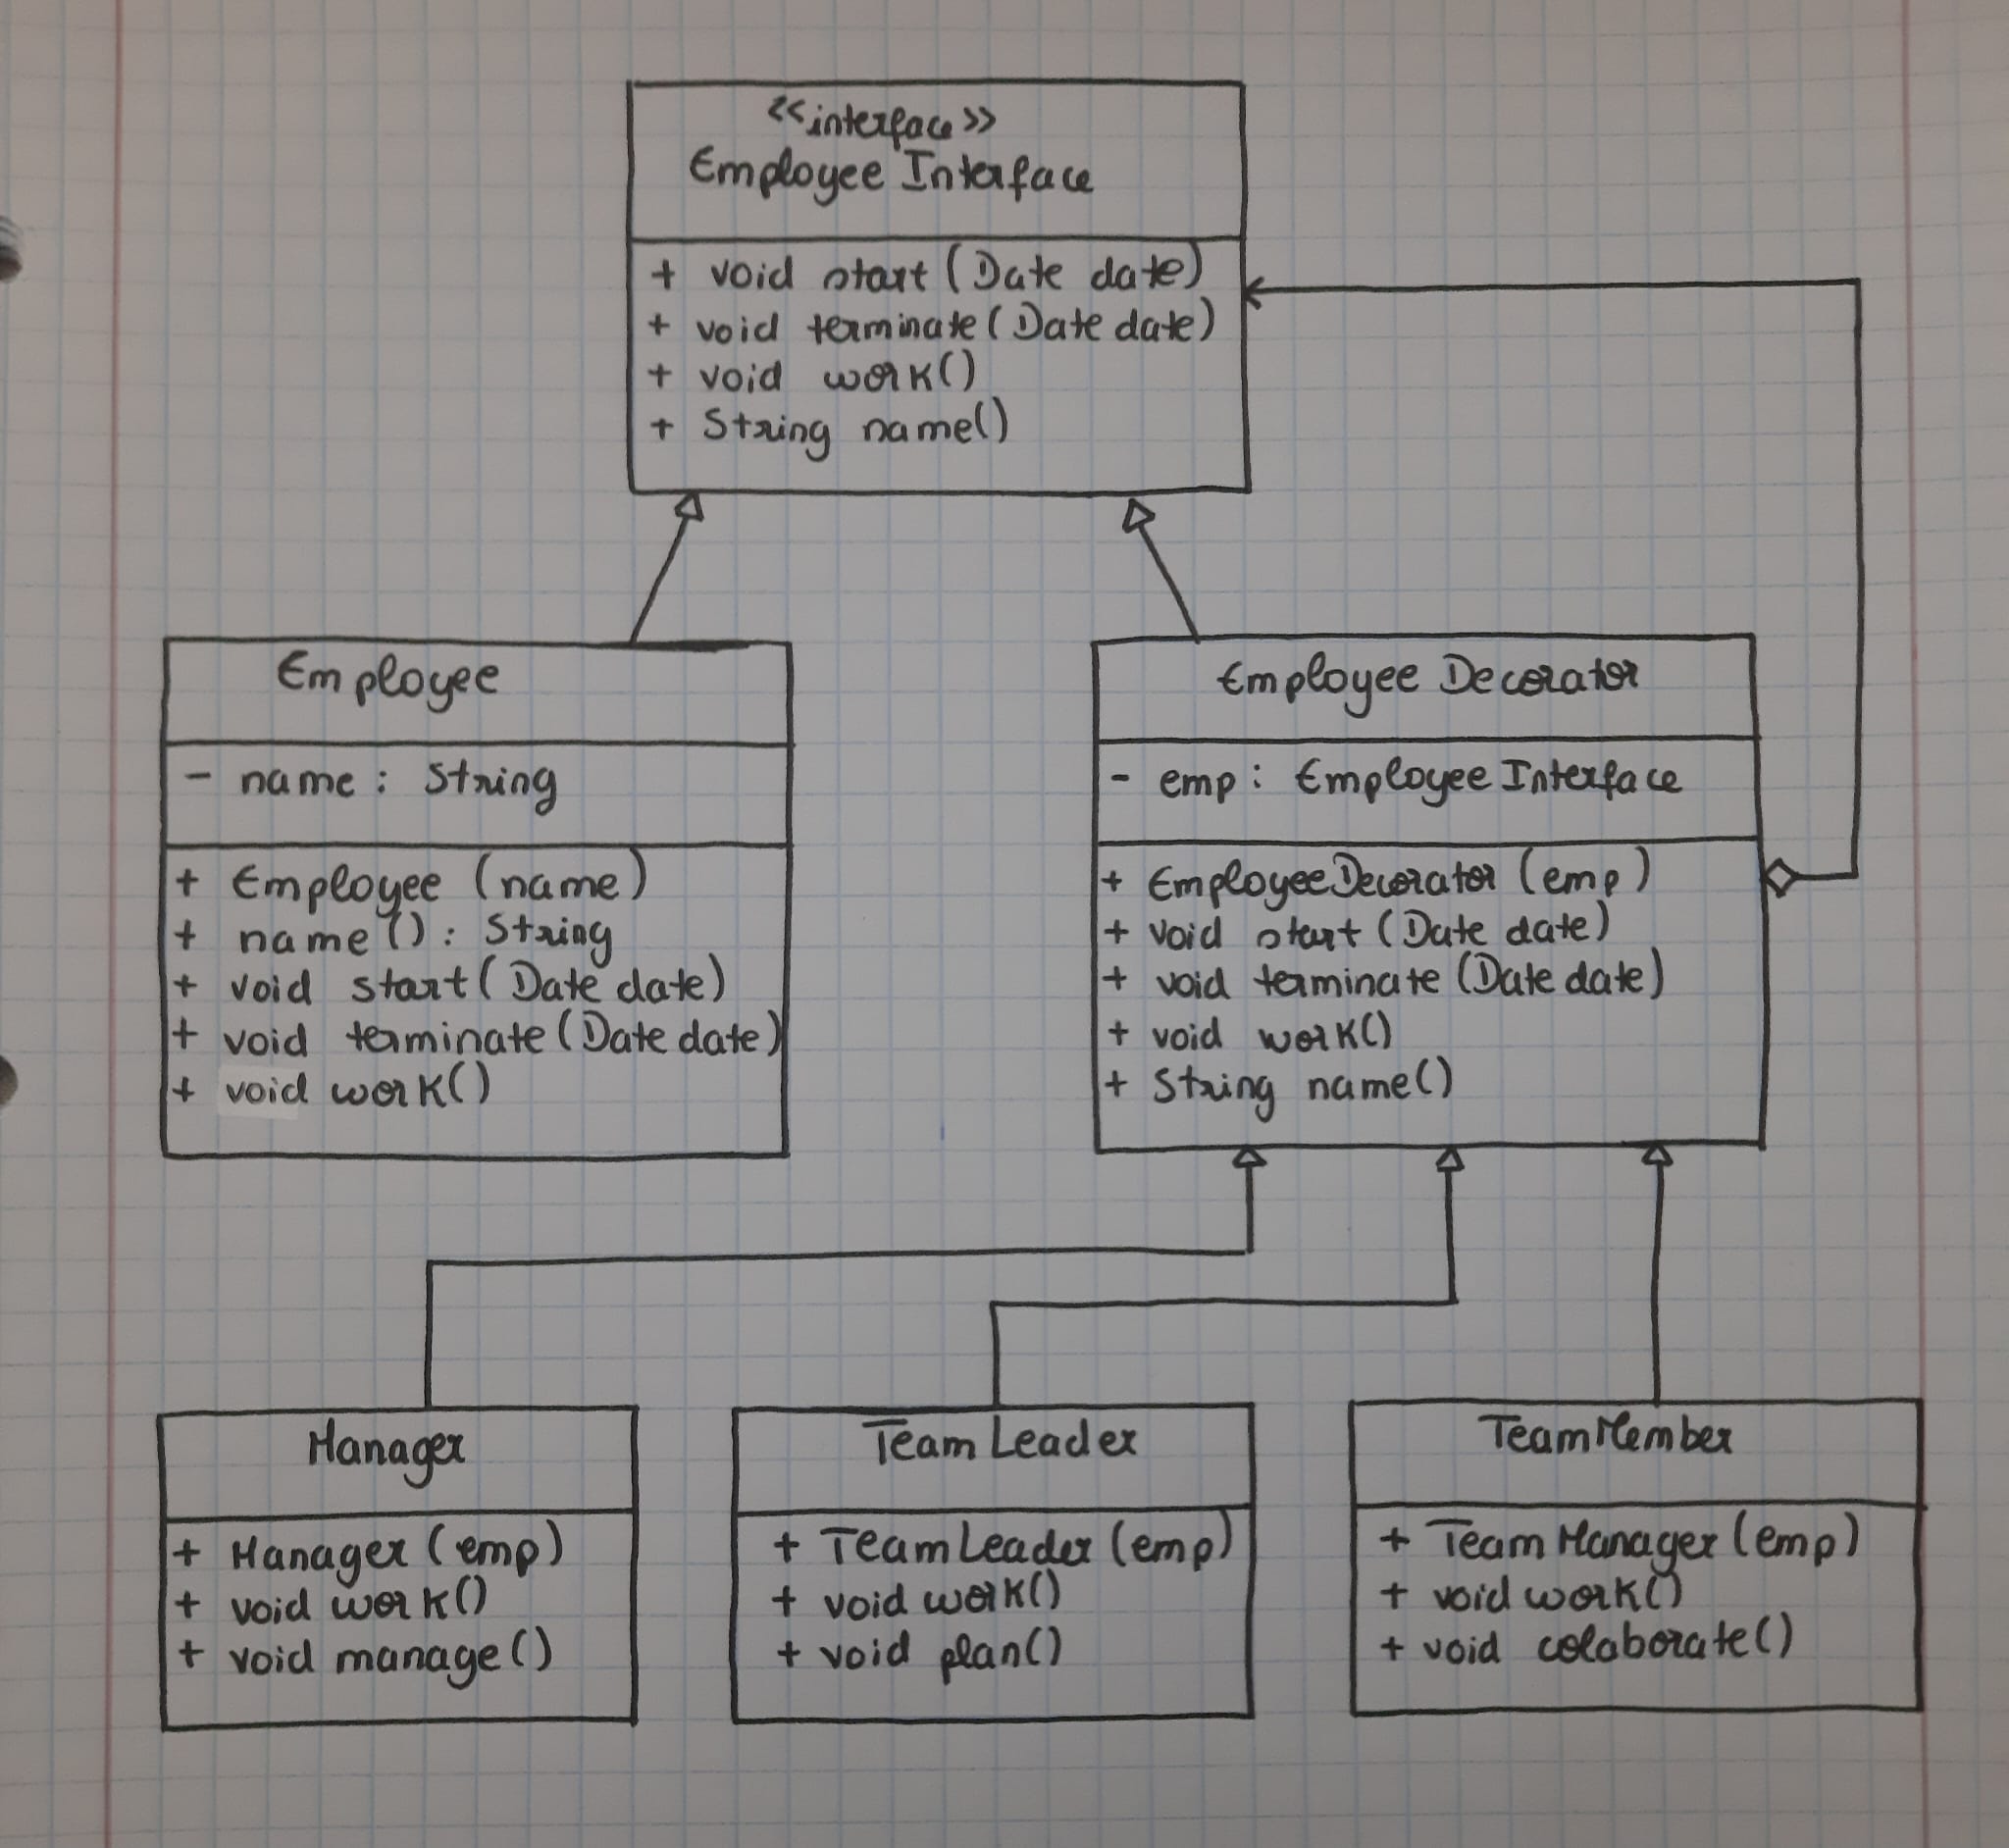 <<interface>>
Employee Interface
+ void start (Date date)
+ void terminate (Date date)
+ void work()
+ String name()
Employee
- name : String
+ Employee (name)
+ name () : String
+ void start (Date date)
+ void terminate (Date date)
+ void work()
Employee Decorator
- emp : Employee Interface
+ EmployeeDecorator (emp)
+ void start (Date date)
+ void terminate (Date date)
+ void work()
+ String name()
Manager
+ Manager (emp)
+ void work()
+ void manage()
Team Leader
+ TeamLeader (emp)
+ void work()
+ void plan()
TeamMember
+ Team Manager (emp)
+ void work()
+ void colaborate()